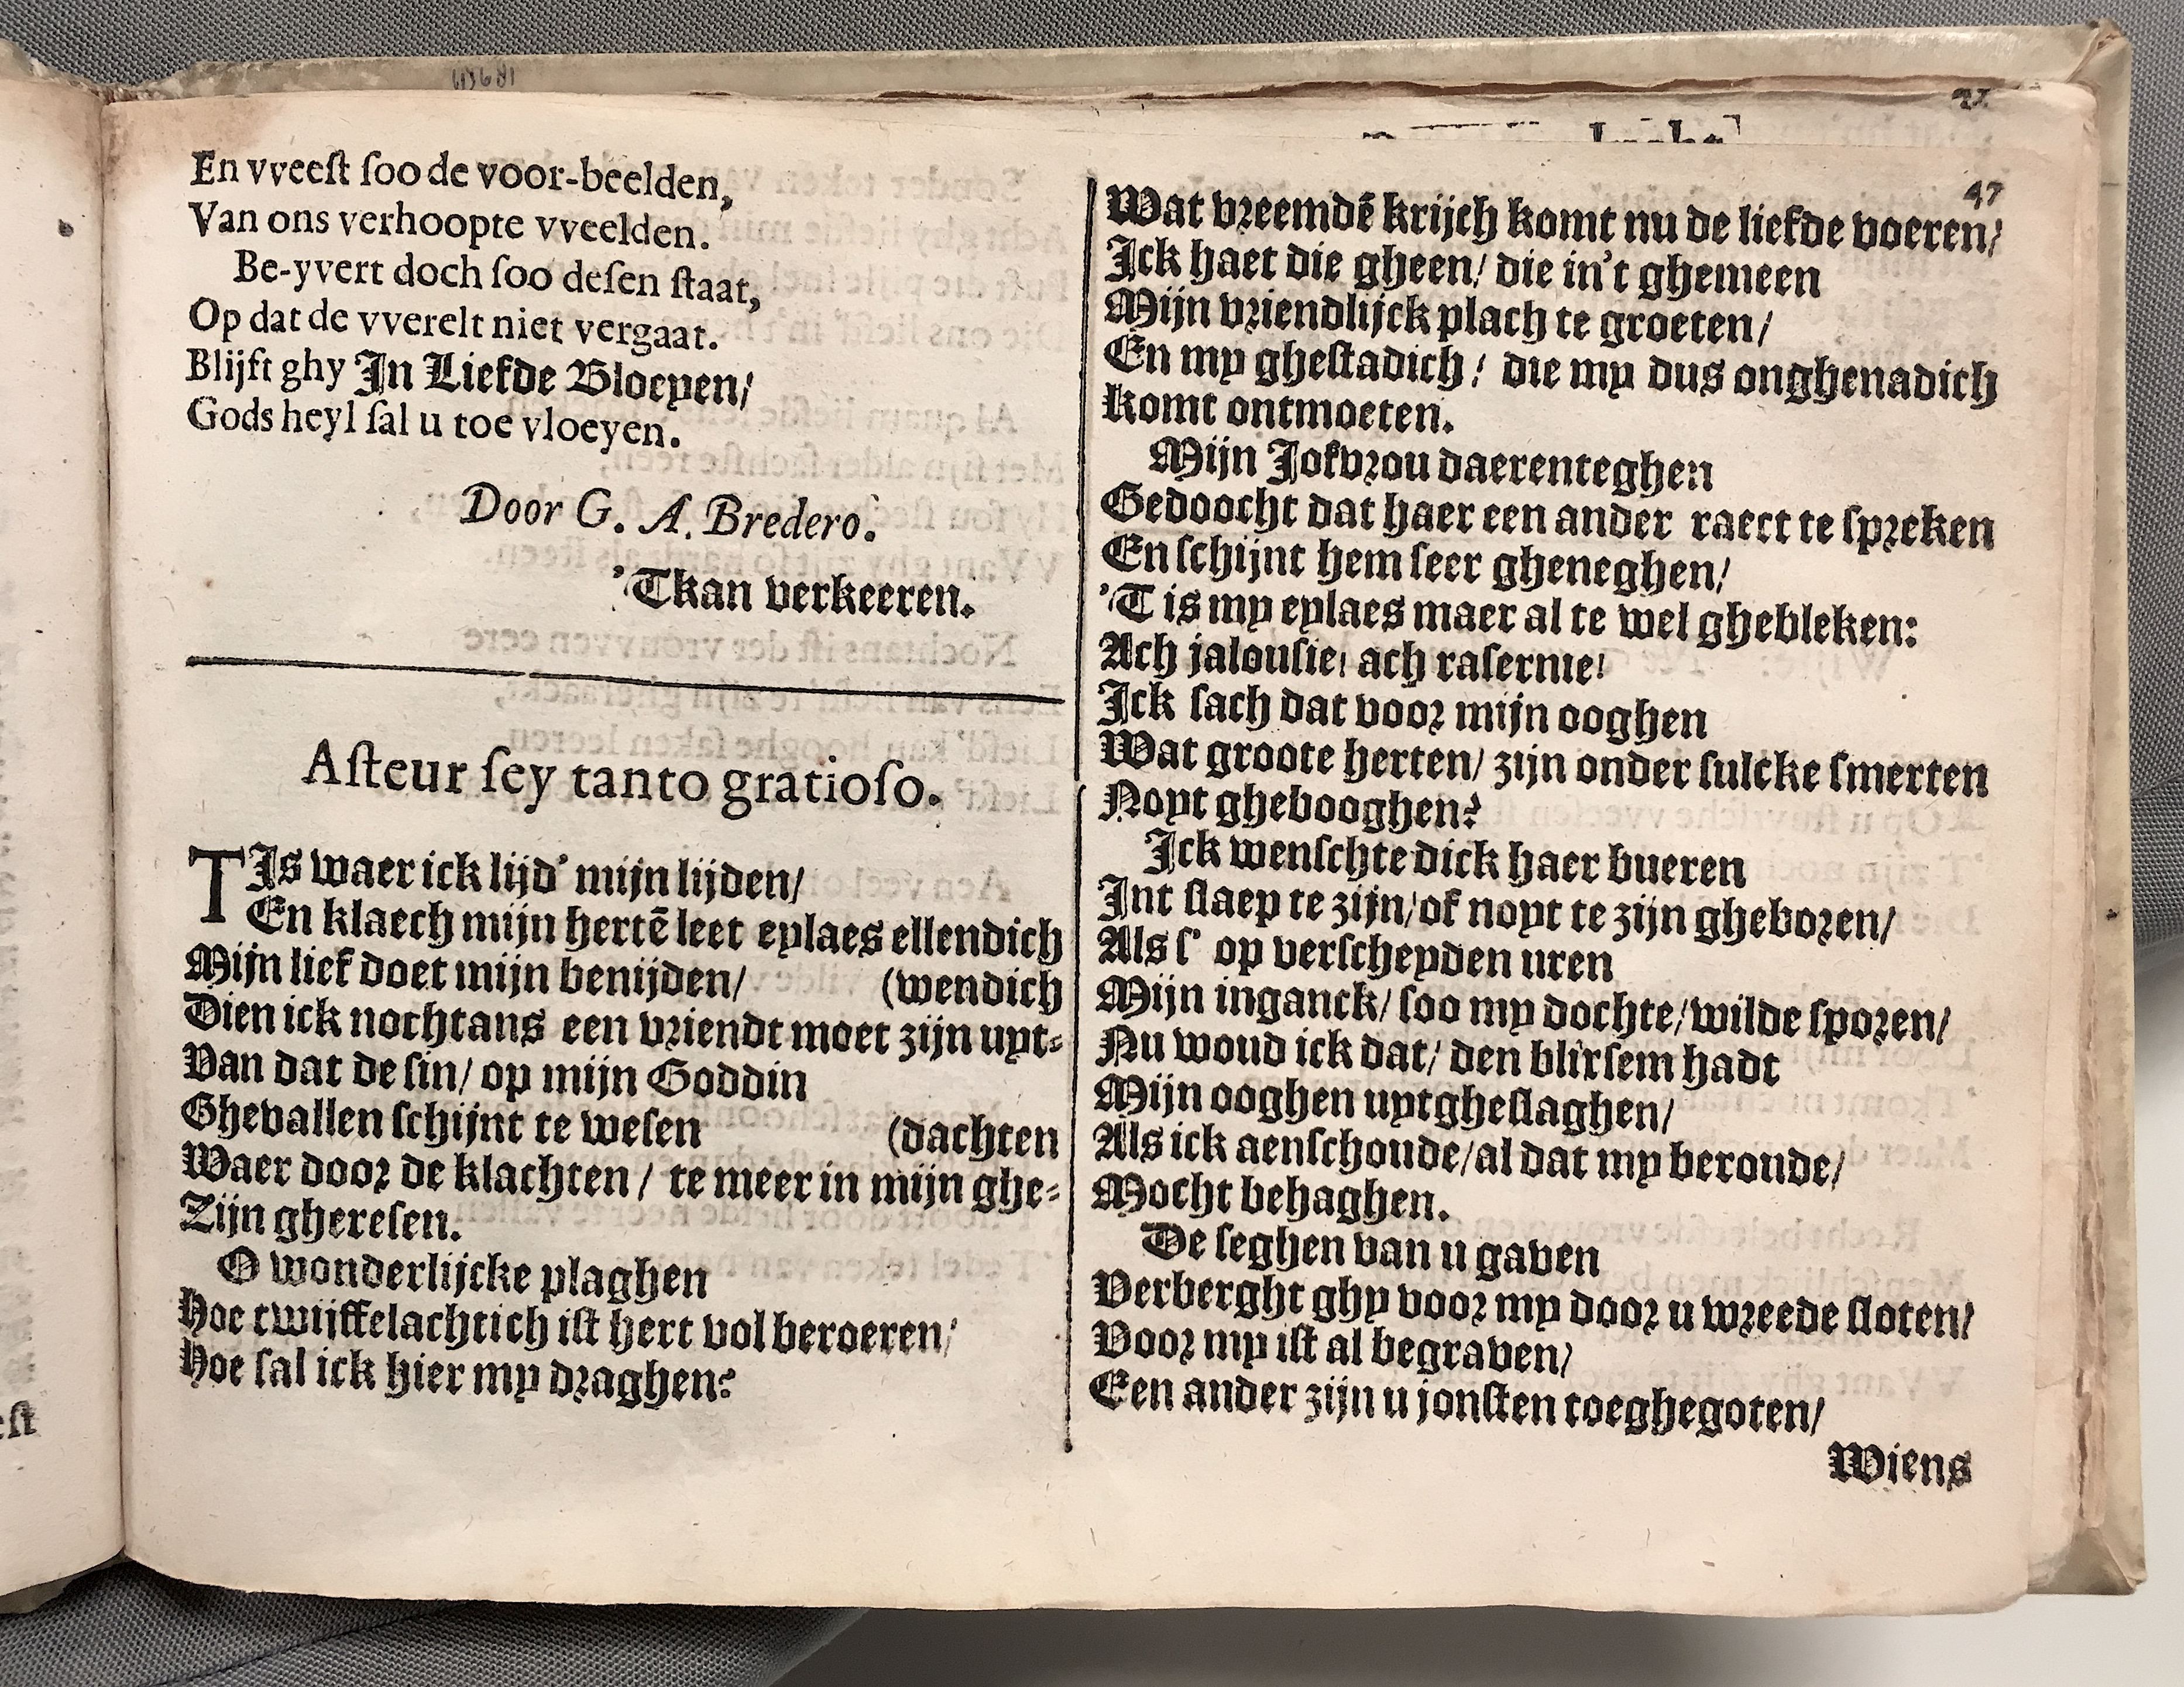 En vveeſt ſoo de voor-beelden,
Van ons verhoopte vveelden.
Be-yvert doch ſoo deſen ſtaat,
Op dat de vverelt niet vergaat.
Blijft ghy In Liefde Bloeyen/
Gods heyl ſal u toe vloeyen.
Door G. A. Bredero.
'Tkan verkeeren.
Aſteur ſey tanto gratioſo.
TIs waer ick lijd' mijn lijden/
En klaech mijn hertē leet eylaes ellendich
Mijn lief doet mijn benijden/ (wendich
Dien ick nochtans een vriendt moet zijn uyt-
Van dat de ſin/ op mijn Goddin
Ghevallen ſchijnt te weſen (dachten
Waer door de klachten / te meer in mijn ghe-
Zijn ghereſen.
O wonderlijcke plaghen
Hoe twijffelachtich iſt hert vol beroeren/
Hoe ſal ick hier my draghen?
47
Wat vreemdē krijch komt nu de liefde voeren/
Ick haet die gheen/ die in't ghemeen
Mijn vriendlijck plach te groeten/
En my gheſtadich/ die my dus onghenadich
komt ontmoeten.
Mijn Jofvrou daerenteghen
Gedoocht dat haer een ander raect te ſpreken
En ſchijnt hem ſeer gheneghen/
'T is my eylaes maer al te wel ghebleken:
Ach jalouſie/ ach raſernie/
Ick ſach dat voor mijn ooghen
Wat groote herten/ zijn onder ſulcke ſmerten
Noyt ghebooghen?
Ick wenſchte dick haer bueren
Int ſlaep te zijn/ of noyt te zijn gheboren/
Als ſ' op verſcheyden uren
Mijn inganck/ ſoo my dochte/ wilde ſporen/
Nu woud ick dat/ den blixſem hadt
Mijn ooghen uytgheſlaghen/
Als ick aenſchoude/ al dat my beroude/
Mocht behaghen.
De ſeghen van u gaven
Verberght ghy voor my door u wreede ſloten/
Voor my iſt al begraven/
Een ander zijn u jonſten toeghegoten/
Wiens